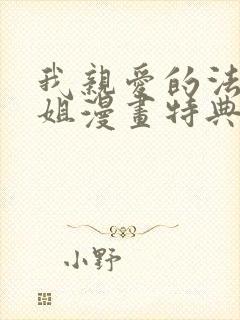 我親愛的法
姐漫畫特典
小野